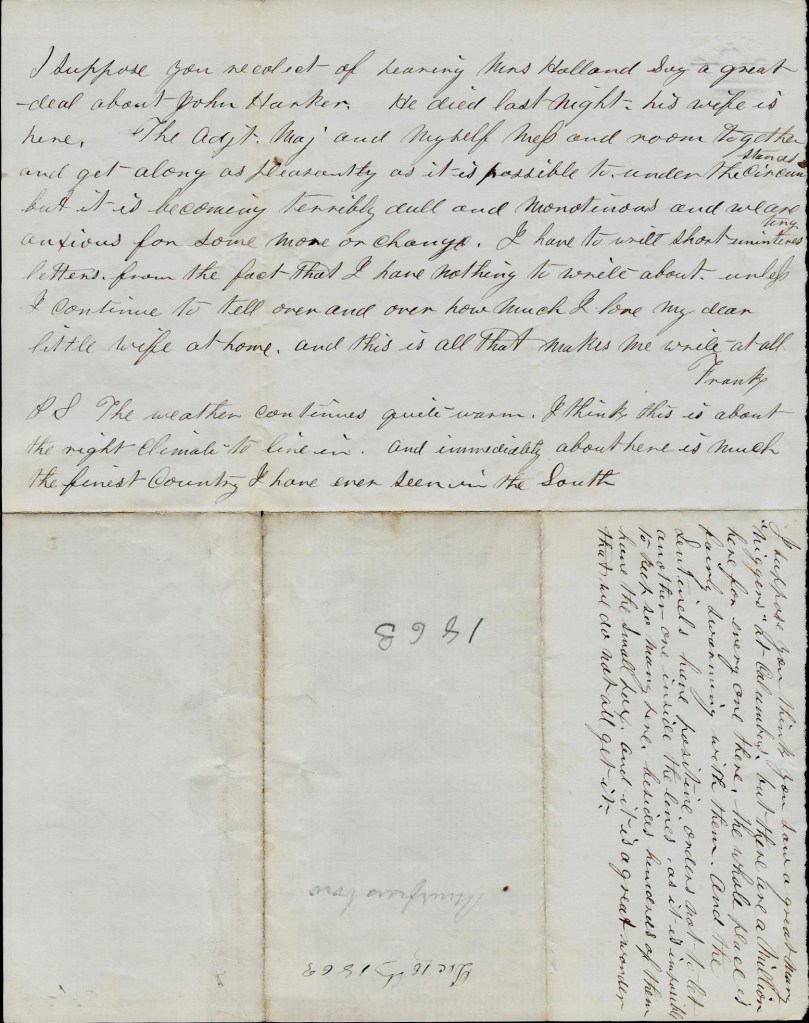 I suppose you recolect of hearing Mrs Holland Say a great
-deal about John Harker. He died last night- his wife is
here. The Adjt. Maj and Myself Mess and room together
and get along as pleasantly as it is possible to. under the circum
stances
but it is becoming terribly dull and monotinous and we are
anxious for some move or change. I have to write short uninteres
ting
letters. from the fact that I have nothing to write about. unless
I continue to tell over and over how much I love my dear
little wife at home. and this is all that makes me write at all
Frank
P S The weather continues quite warm. I think this is about
the right climate to live in. and immediately about here is much
the finest Country I have ever seen in the South
I suppose you think you saw a great many
"niggers" at Columbus. but there are a Million
here for every one there. the whole place is
fairly swarming with them. And the
Sentinels have positive orders not to let
another one inside the lines. as it is impossible
to keep so many here. besides hundreds of them
have the small pox. and it is a great wonder
that we do not all get it.
1863
Murfreesboro
Dec 1863